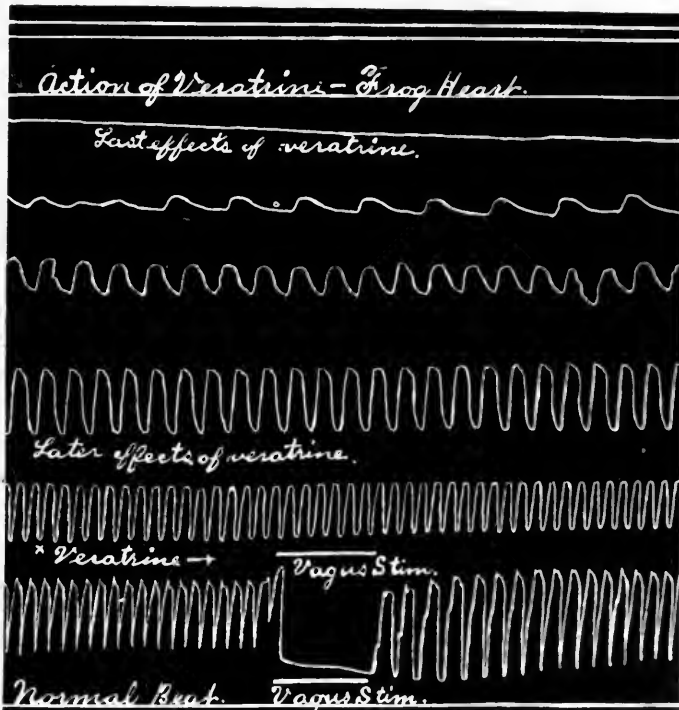 Action of Veratrine - Frog Heart.
Last effects of veratrine.
Later effects of veratrine.
x Veratrine →
Vagus Stim.
Normal Beat.
Vagus Stim.